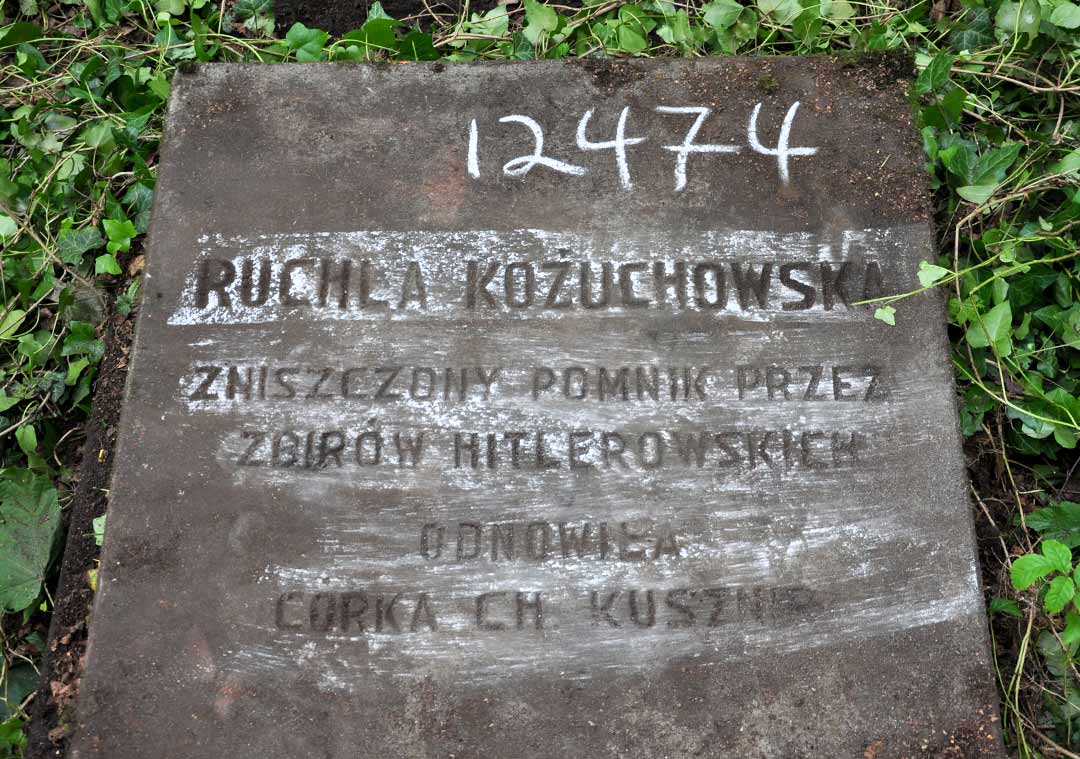 12474
RUCHLA KOŻUCHOWSKA
ZNISZCZONY POMNIK PRZEZ
ZBIRÓW HITLEROWSKICH
ODNOWIŁA
CÓRKA CH. KUSZNIR